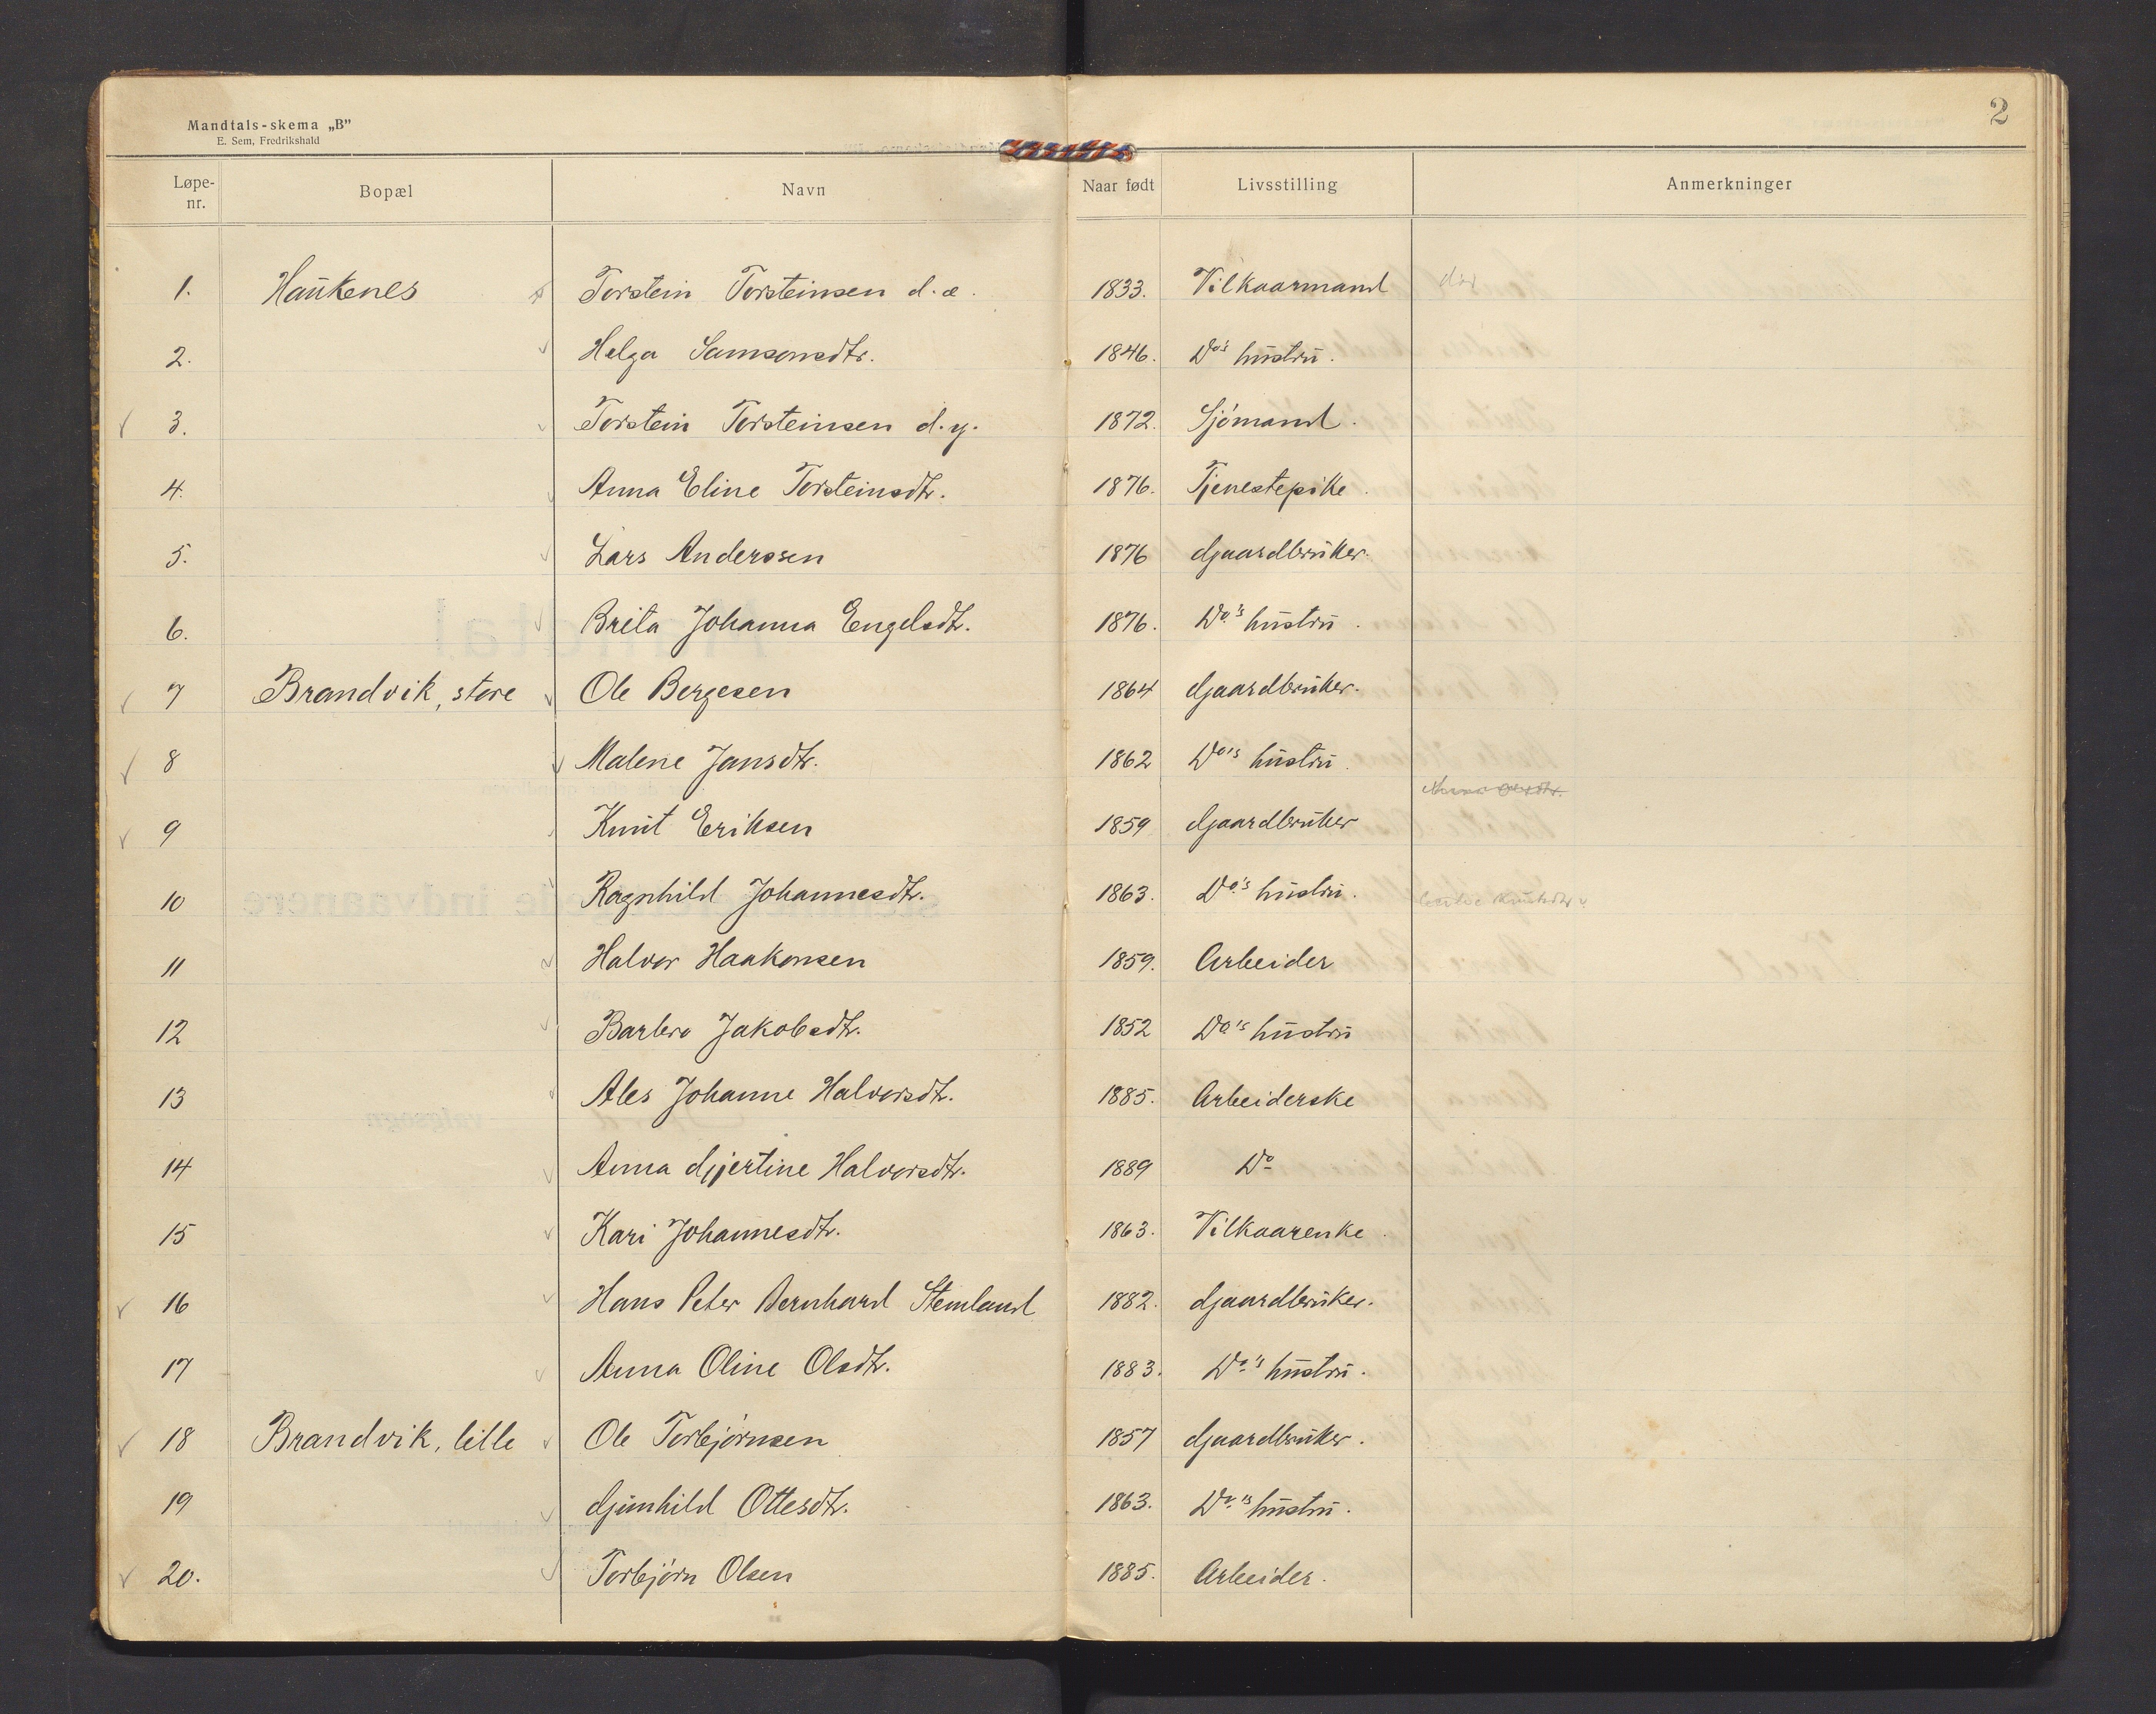 Mandtals-skema „B”
E. Sem, Fredrikshald
2
Løpe-nr. Bopæl Navn Naar født Livsstilling Anmerkninger
1. Haukenes Torstein Torsteinsen d.æ. 1833. Vilkaarmand død
2. Helga Samsonsdtr. 1846. Do's hustru.
3. Torstein Torsteinsen d.y. 1872. Sjömand.
4. Anna Eline Torsteinsdtr. 1876. Tjenestepike.
5. Lars Anderssen 1876 Gaardbruker.
6. Brita Johanna Engelsdtr. 1876. Do's hustru.
7 Brandvik, store Ole Bergesen 1864 Gaardbruker.
8 Malene Jansdtr. 1862 Do's hustru.
9 Knut Eriksen 1859 Gaardbruker
10 Ragnhild Johannesdtr. 1863. Do's hustru.
11 Halvor Haakonsen 1859. Arbeider
12 Barbro Jakobsdtr. 1852 Do's hustru
13 Ales Johanne Halvorsdtr. 1885. Arbeiderske
14 Anna Gjertine Halvorsdtr. 1889 Do
15 Kari Johannesdtr. 1863. Vilkaarenke.
16 Hans Peter Bernhard Stemland 1882. Gaardbruker.
17 Anna Oline Olsdtr. 1883. Do's hustru.
18 Brandvik, lille Ole Torbjörnsen 1857 Gaardbruker.
19 Gunhild Ottesdtr. 1863. Do's hustru.
20. Torbjörn Olsen 1885. Arbeider.